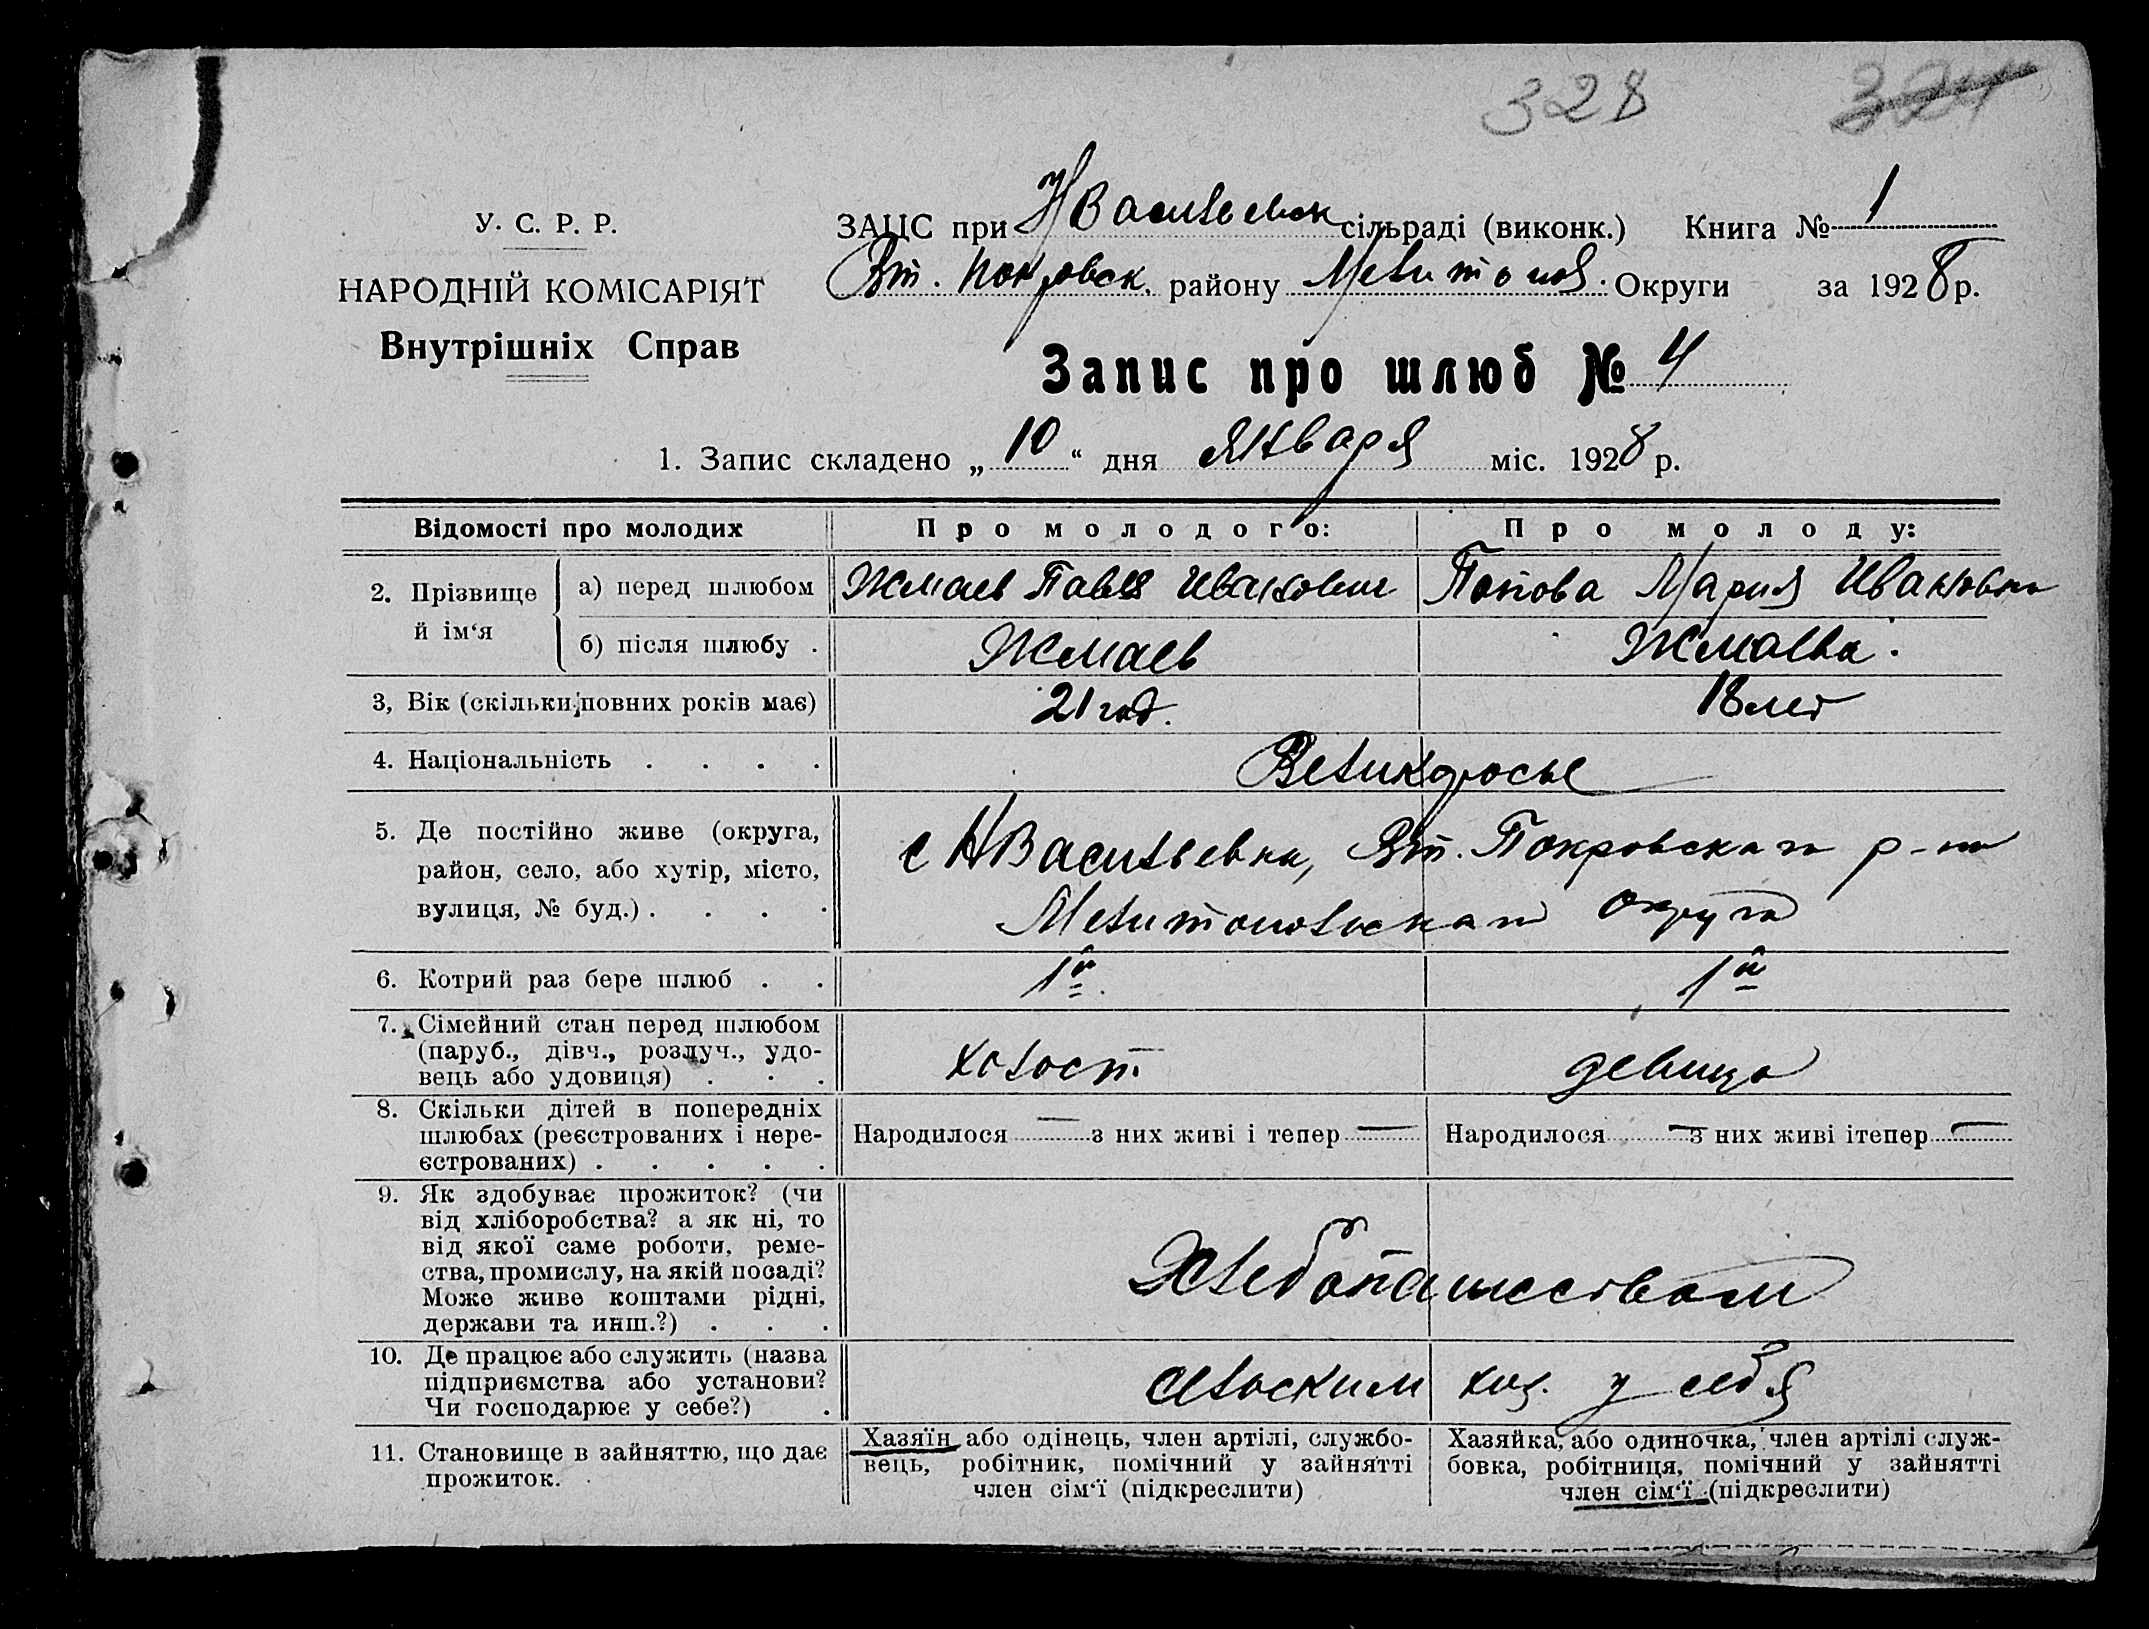 328 324
У. С. Р. Р.
НАРОДНІЙ КОМІСАРІЯТ
Внутрішніх Справ
ЗАЦС при НВасильевск сільраді (виконк.) Книга № 1
Вт. Покровск. району Мелитопол. Округи за 1928 р.
Запис про шлюб № 4
1. Запис складено „ 10 “ дня Января міс. 1928 р.
Відомості про молодих Про молодого: Про молоду:
2. Прізвище й ім‘я
а) перед шлюбом Жмаев Павел Иванович Попова Мария Ивановна
б) після шлюбу . Жмаев Жмаева.
3, Вік (скільки повних років має) 21 год. 18 лет
4. Національність . . . . Великоросы
5. Де постійно живе (округа,
район, село, або хутір, місто,
вулиця, № буд.) . . . .
с НВасильевки, Вт. Покровскаго р-на
Мелитопольскаго округа
6. Котрий раз бере шлюб . . 1й 1й
7. Сімейний стан перед шлюбом
(паруб., дівч., розлуч., удо-
вець або удовиця) . . .
холост девица
8. Скільки дітей в попередніх
шлюбах (реєстрованих і нере-
єстрованих) . . . . .
Народилося — з них живі і тепер — Народилося — з них живі ітепер —
9. Як здобуває прожиток? (чи
від хліборобства? а як ні, то
від якої саме роботи, реме-
ства, промислу, на якій посаді?
Може живе коштами рідні,
держави та инш.?) . . .
Хлебопашеством
10. Де працює або служить (назва
підприємства або установи?
Чи господарює у себе?) .
сельским хоз. у себя
11. Становище в зайняттю, що дає
прожиток.
Хазяїн або одінець, член артілі, службо-
вець, робітник, помічний у зайнятті
член сім‘ї (підкреслити)
Хазяйка, або одиночка, член артілі служ-
бовка, робітниця, помічний у зайнятті
член сім‘ї (підкреслити)